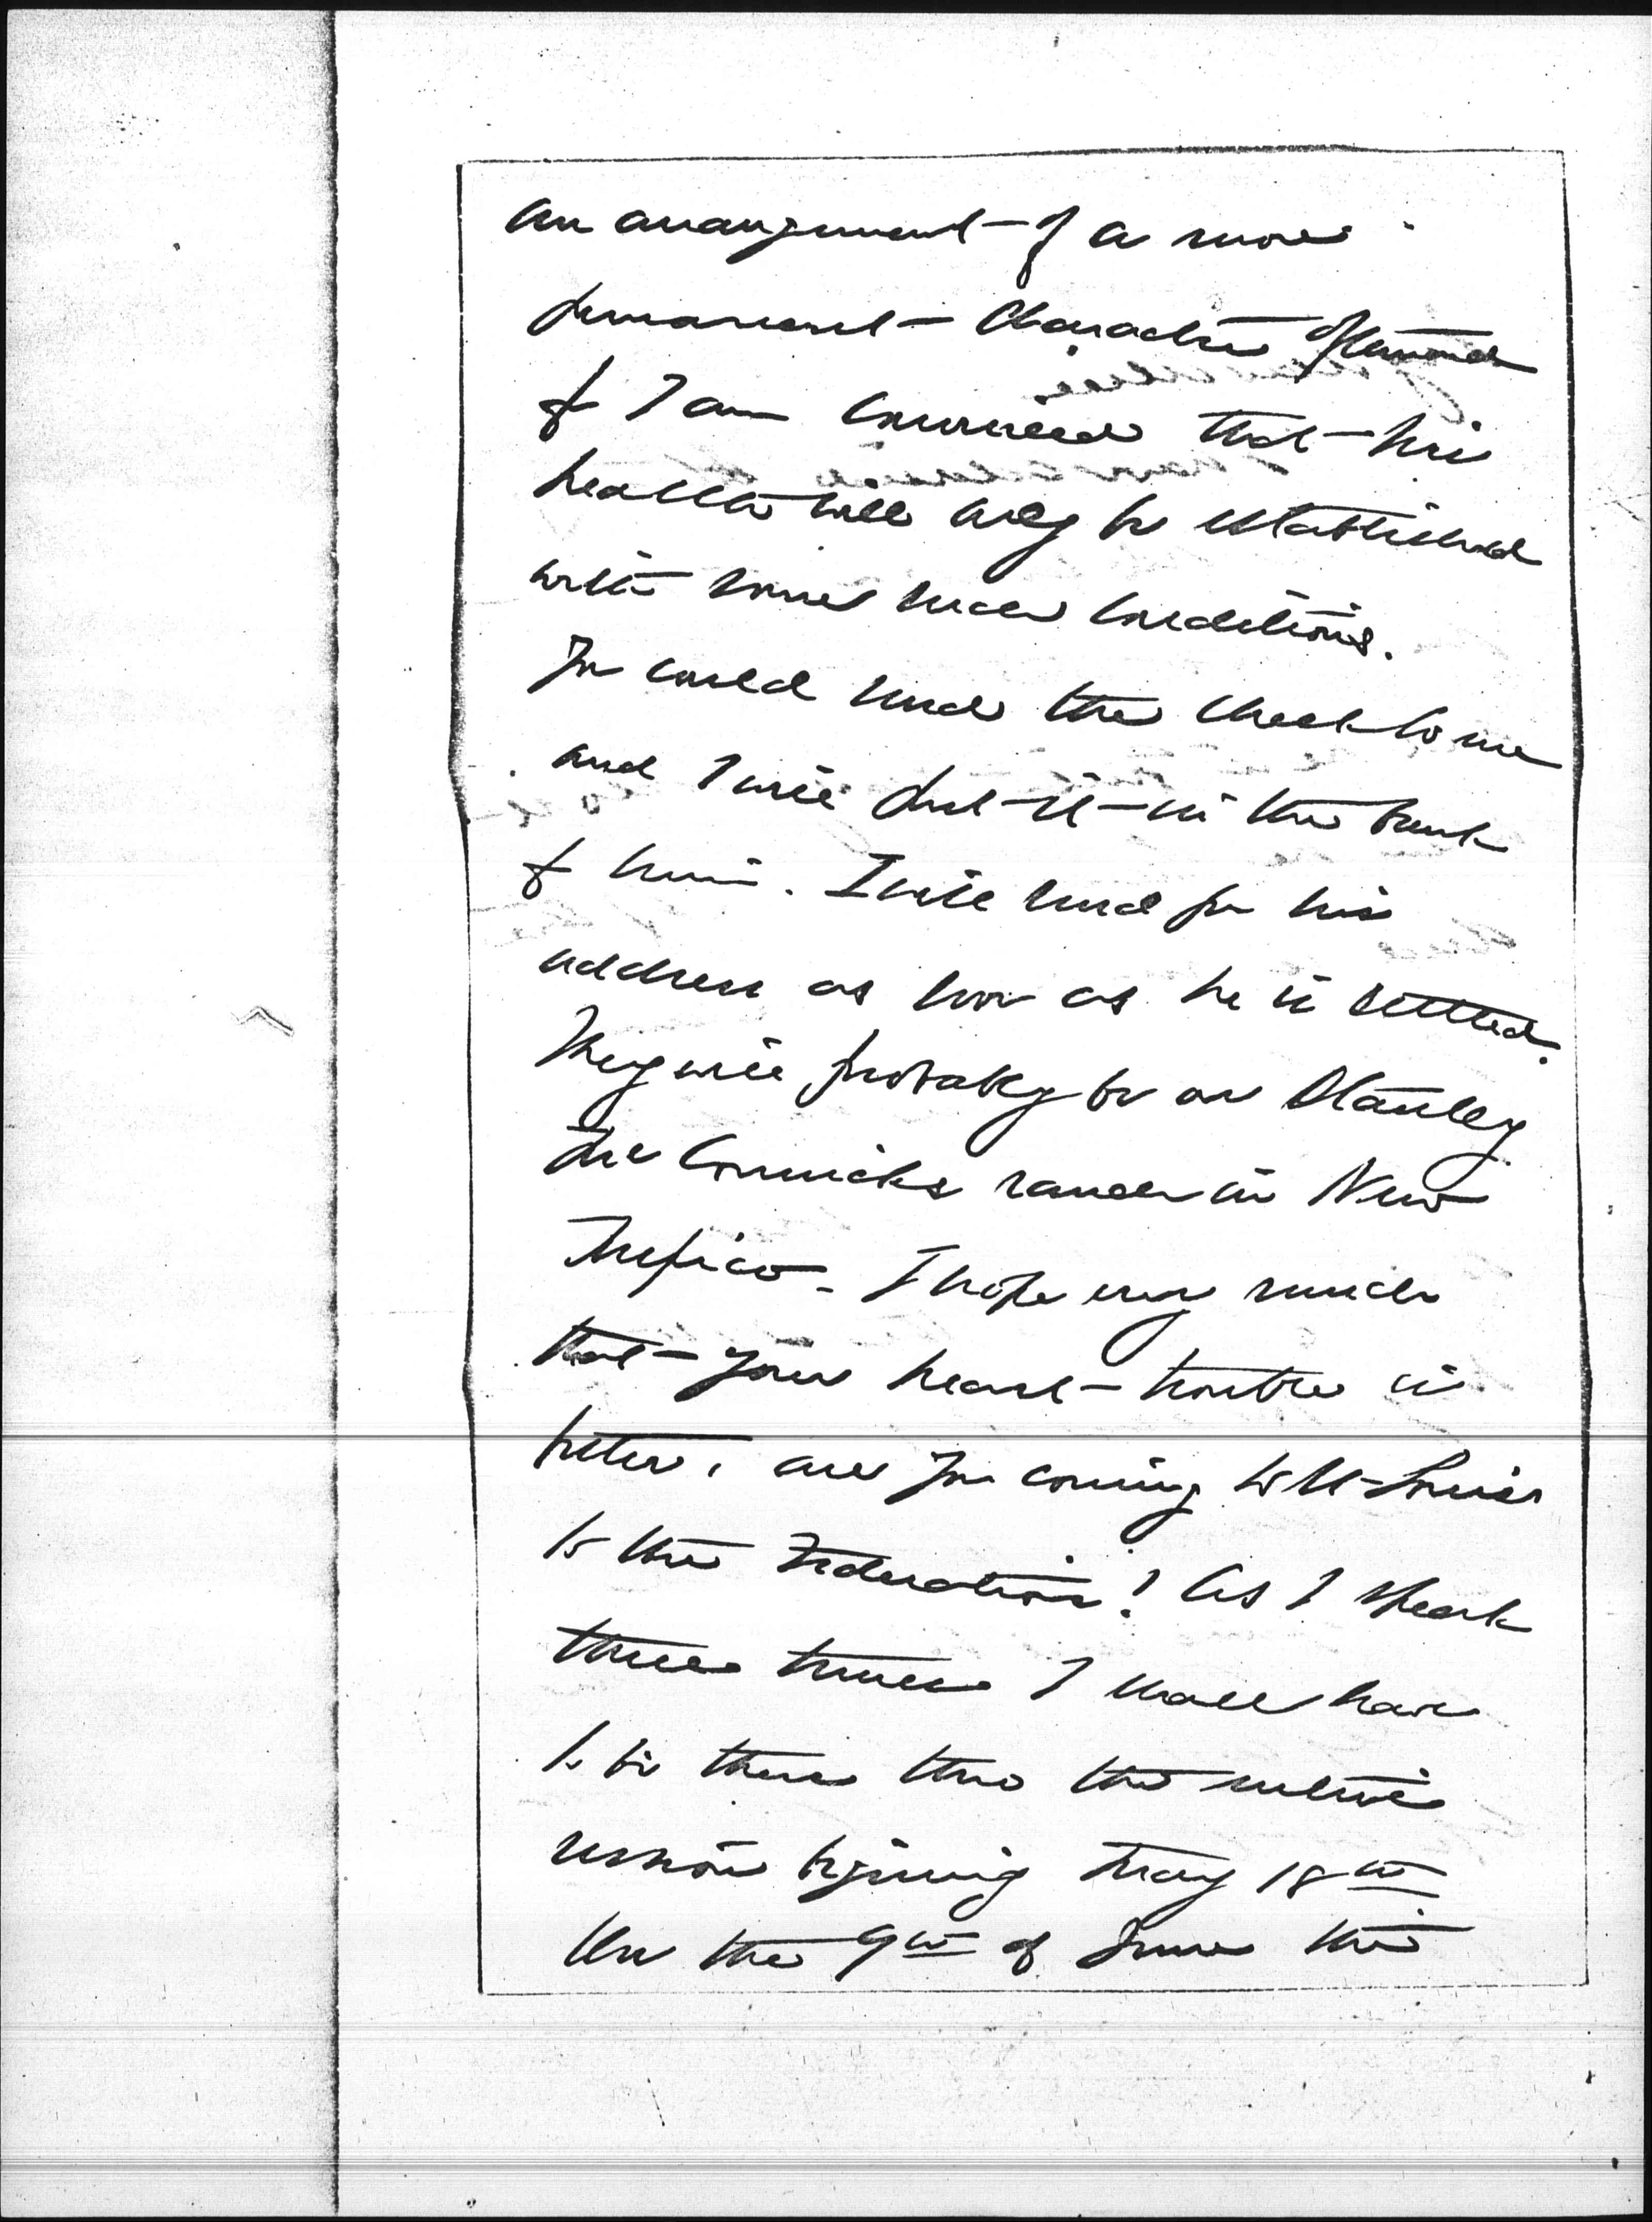 an arrangement of a more
permanent character
for I am convinced that his
health will only be established
with some such conditions.
You could send the check to me
and I will put it in the bank
for him. I will send you his
address as soon as he is settled.
They will probably be on Stanley
McCormicks ranch in New
Mexico. I hope very much
that your heart trouble is
better, are you coming to St Louis
to the Federation? As I speak
three times I shall have
to be there thro the entire
session beginning May 18th
On the 9th of June the